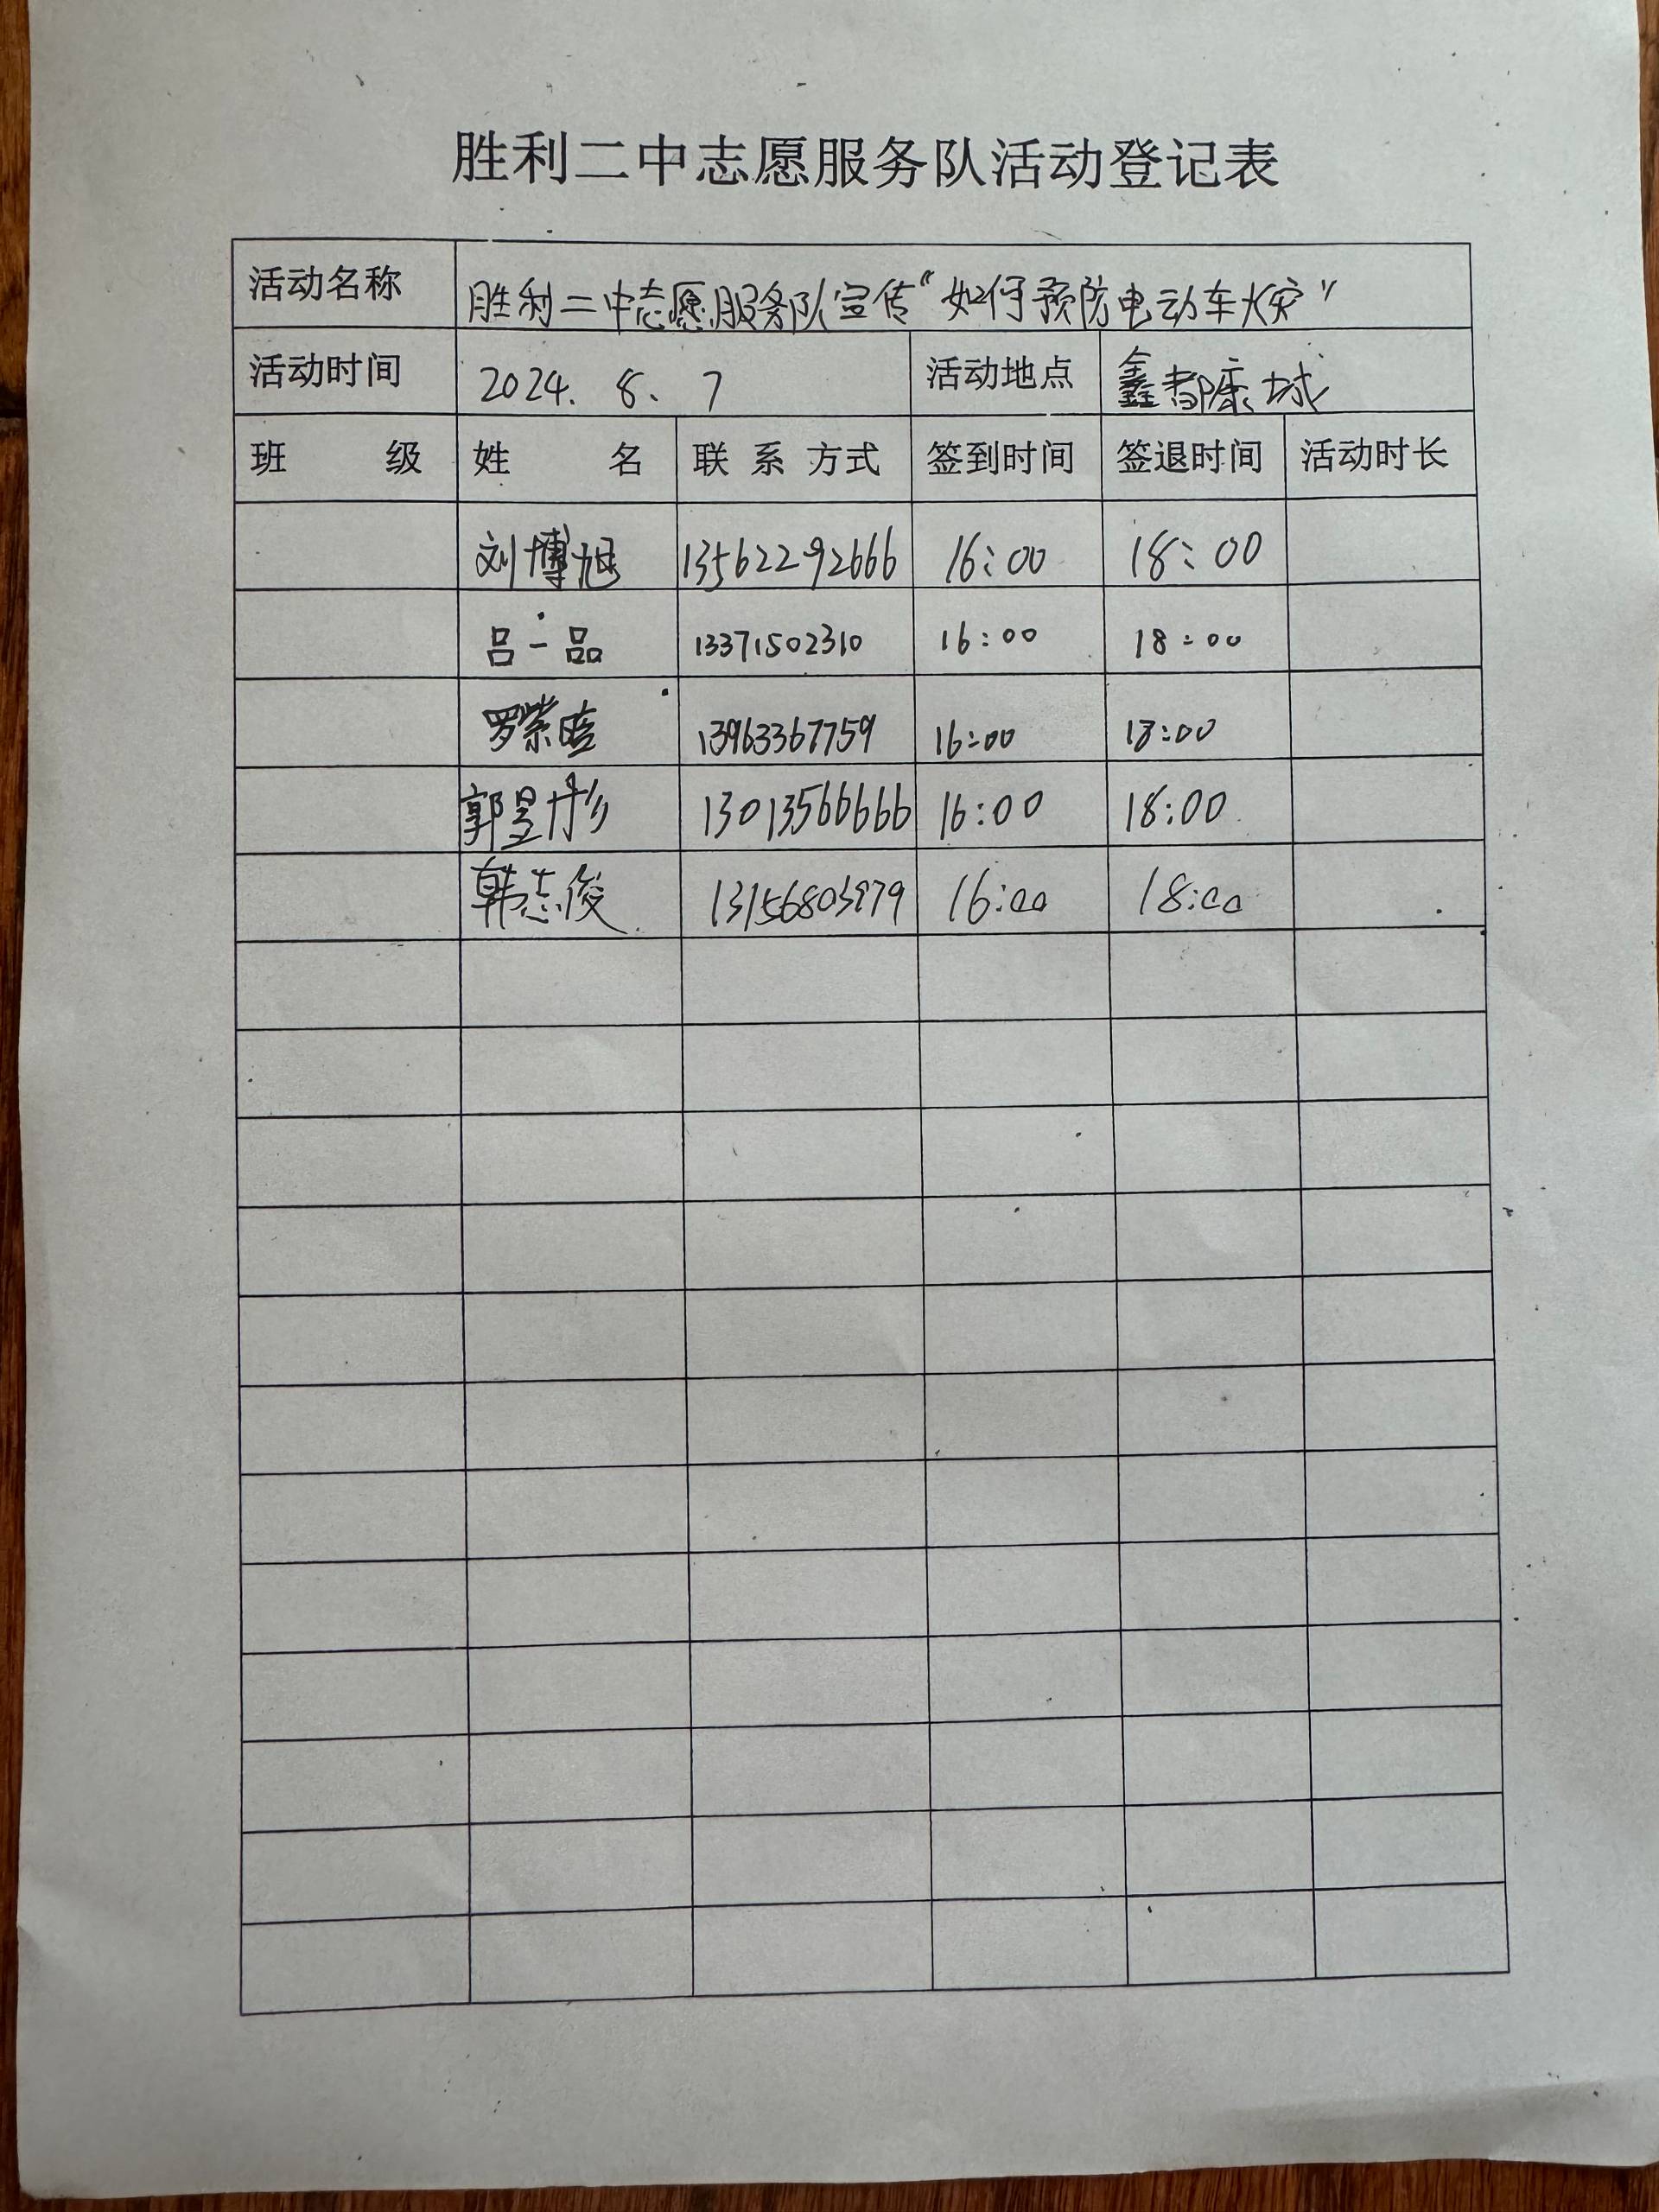 胜利二中志愿服务队活动登记表
活动名称 胜利二中志愿服务队宣传“如何预防电动车火灾”
活动时间 2024. 8. 7 活动地点 鑫都康城
班 级 姓 名 联 系 方式 签到时间 签退时间 活动时长
刘博旭 13562292666 16:00 18:00
吕一品 13371502310 16:00 18:00
罗紫晗 13963367759 16:00 18:00
郭昱彤 13013566666 16:00 18:00
韩志俊 16:00 18:00